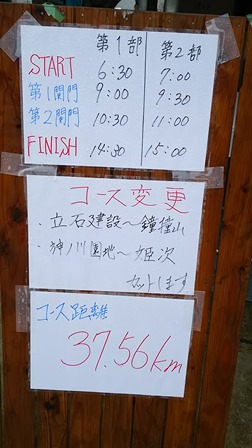 第1部 第2部
START 6:30 7:00
第1関門 9:00 9:30
第2関門 10:30 11:00
FINISH 14:30 15:00
コース変更
・立石建設〜鐘撞山
・神ノ川園地〜姫次
カットします
コース距離
37.56km